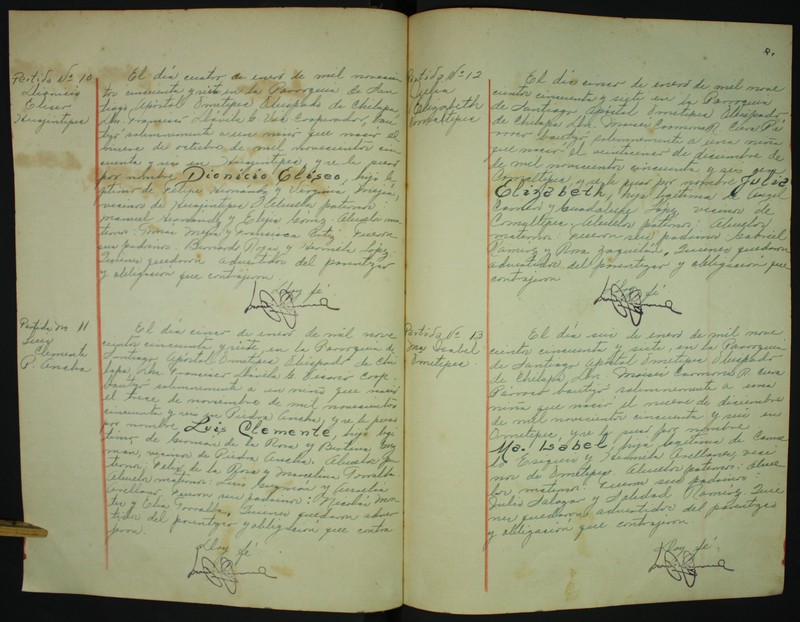 Partida No 10
Dionicio
Eliseo
Huajintepec
El día cuatro de enero de mil novecien
tos cincuenta y siete en la Parroquia de San
tiago Apóstol Ometepec Obispado de Chilapa,
Francisco Cooperador, bau
tizó solemnemente a un niño que nació el
nueve de octubre de mil novecientos cin
cuenta y seis en Huajintepec, y se le puso
por nombre Dionicio Eliseo, hijo le
gítimo de Felipe Hernández y Virginia
vecinos de Huajintepec. Abuelos paternos:
Manuel Hernández y Abuelos ma
ternos: Tomás Mejía y Francisca Ortiz. Fueron
sus padrinos: Bernardo Rojas y López,
Quienes quedaron advertidos del parentezco
y obligación que contrajeron.
Doy fé
Partida No 11
Luis
Clemente
P. Ancha
El día cinco de enero de mil nove
cientos cincuenta y siete, en la Parroquia de
Santiago Apóstol Ometepec Obispado de Chi
lapa, Francisco Coop.
bautizó solemnemente a un niño que nació
el trece de noviembre de mil novecientos
cincuenta y seis en Piedra Ancha, y se le puso
por nombre Luis Clemente, hijo legí
timo de Germán de la Rosa y Guz
mán, vecinos de Piedra Ancha. Abuelos pa
ternos: Felix de la Rosa y Marcelina Torralba
Abuelos maternos: Luis Guzmán y Amelia
Arellanes. Fueron sus padrinos: Nicolás Mon
tes y Elia Torralba, Quienes quedaron adver
tidos del parentezco y obligación que contra
jeron.
Doy fé
Partida No 12
Julia
Elizabeth
Comaltepec
El día cinco de enero de mil nove
cientos cincuenta y siete en la Parroquia
de Santiago Apóstol Ometepec Obispado
de Chilapa, Moisés Carmona R. Cura Pá
rroco bautizó solemnemente a una niña
que nació el veintinueve de diciembre de
de mil novecientos cincuenta y seis en
Comaltepec, y se le puso por nombre Julia
Elizabeth, hija legítima de Angel
Carrera y Guadalupe López vecinos de
Comaltepec. Abuelos paternos: Abuelos
maternos: Fueron sus padrinos Gabriel
Ramírez y Rosa Quienes quedaron
advertidos del parentezco y obligación que
contrajeron
Doy fé
Partida No 13
Ma Isabel
Ometepec
El día seis de enero de mil nove
cientos cincuenta y siete, en la Parroquia
de Santiago Apóstol Ometepec Obispado
de Chilapa, Moisés Carmona R. Cura
Párroco bautizó solemnemente a una
niña que nació el nueve de diciembre
de mil novecientos cincuenta y seis en
Ometepec, y se le puso por nombre
Ma. Isabel, hija legítima de
y Arellanes, veci
nos de Ometepec Abuelos paternos: abue
los maternos: Fueron sus padrinos:
Julio Salazar y Soledad Ramírez. Quie
nes quedaron advertidos del parentezco
y obligación que contrajeron.
Doy fé.